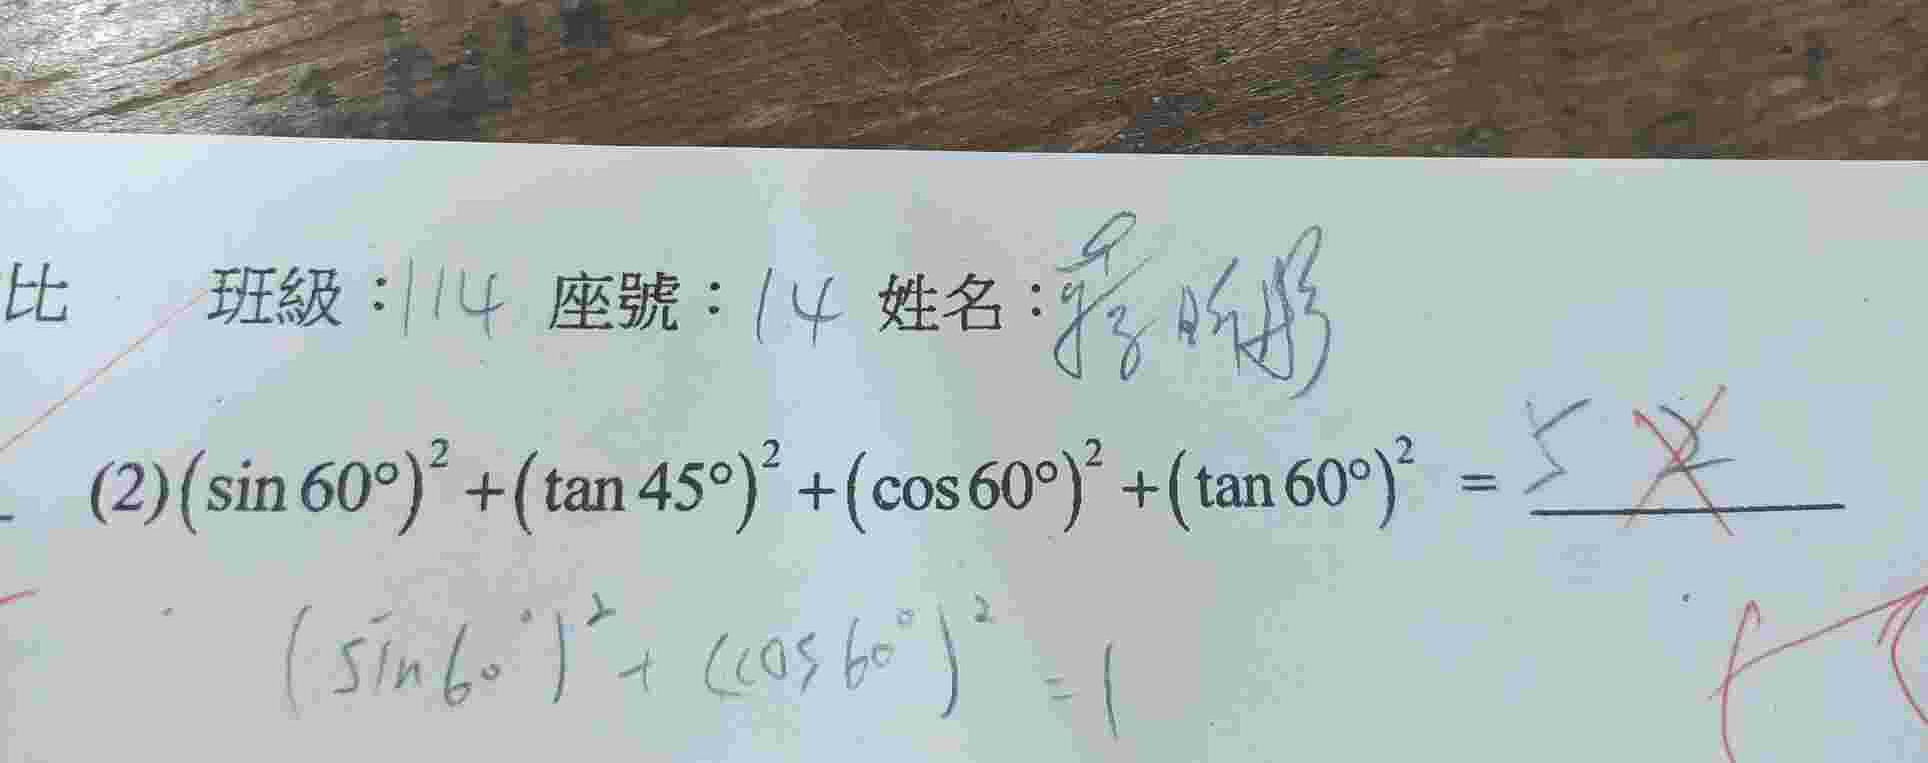 比 班級：114 座號：14 姓名：蔣昀彤
(2)(sin 60°)² + (tan 45°)² + (cos 60°)² + (tan 60°)² = 5 2
(sin 60°)² + (cos 60°)² = 1